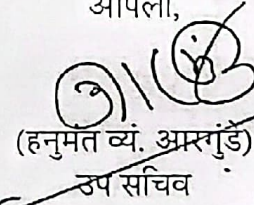 आपला,
(हनुमंत व्यं. आरगुंडे)
उप सचिव